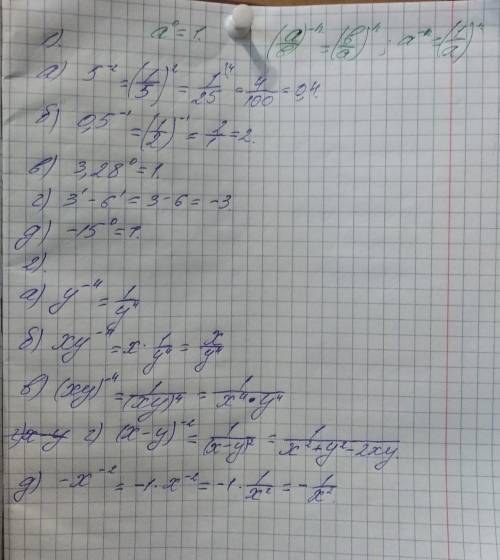 1). a⁰ = 1. (a/в)⁻ⁿ = (в/a)⁻ⁿ ; a⁻ⁿ = (1/a)ⁿ
а) 5⁻² = (1/5)² = 1/25 \⁴ = 4/100 = 0,4.
б) 0,5⁻¹ = (1/2)⁻¹ = 2/1 = 2.
в) 3,28⁰ = 1.
г) 3¹ - 6¹ = 3 - 6 = -3
д) -15⁰ = 1.
2).
а) y⁻⁴ = 1/y⁴
б) xy⁻⁴ = x · 1/y⁴ = x/y⁴
в) (xy)⁻⁴ = 1/(xy)⁴ = 1/x⁴·y⁴
г) (x-y)⁻² = 1/(x-y)² = 1/x²+y²-2xy.
д) -x⁻² = -1·x⁻² = -1·1/x² = -1/x²